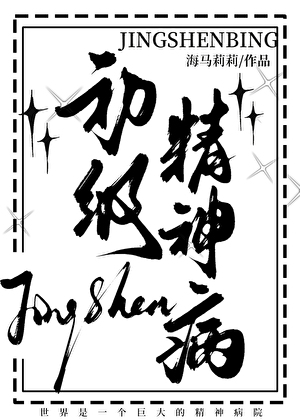 JINGSHENBING
海马莉莉/作品
初级
精神病
JingShen
世界是一个巨大的精神病院